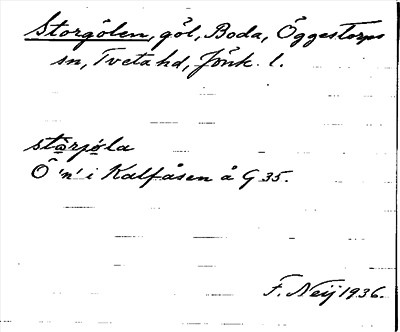 Storgölen, göl, Boda, Öggestorps
sn, Tveta hd, Jönk. l.
stǫrjǫla
Ö 'n' i Kalfåsen å G 35.
F. Neij 1936.